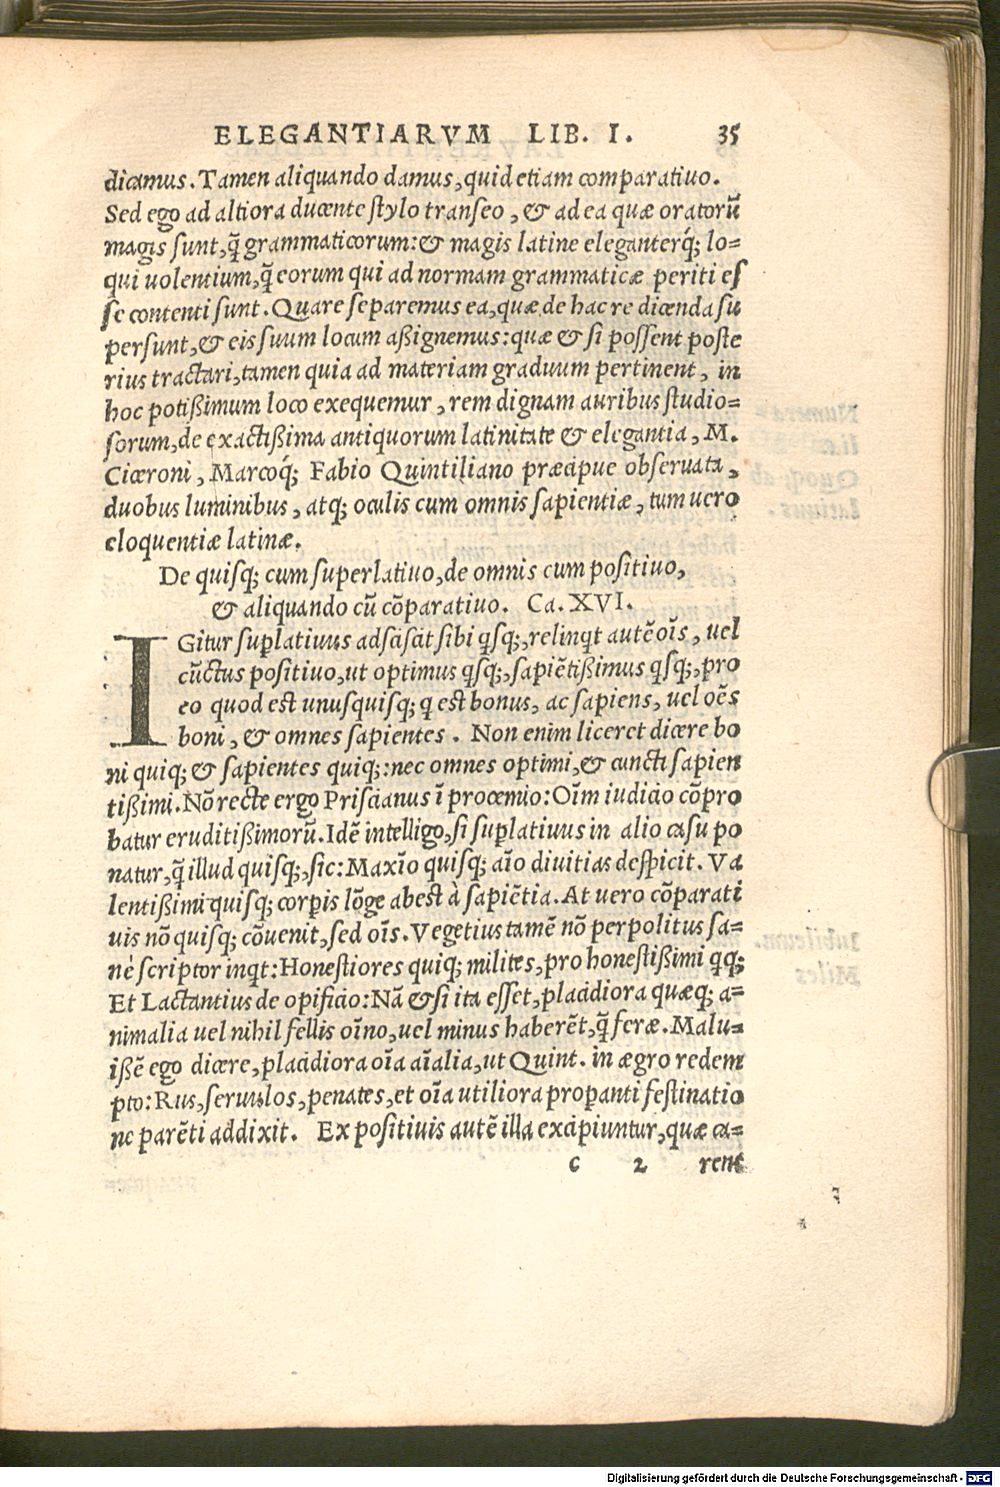 ELEGANTIARVM LIB. I. 35
dicamus. Tamen aliquando damus, quid etiam comparatiuo.
Sed ego ad altiora ducente stylo transeo, & ad ea quæ oratorũ
magis sunt, q̃ grammaticorum: & magis latine eleganterq́; lo=
qui uolentium, q̃ eorum qui ad normam grammaticæ periti es
se contenti sunt. Quare separemus ea, quæ de hac re dicenda su
persunt, & eis suum locum aßignemus: quæ & si possent poste
rius tractari, tamen quia ad materiam graduum pertinent, in
hoc potißimum loco exequemur, rem dignam auribus studio=
sorum, de exactißima antiquorum latinitate & elegantia, M.
Ciceroni, Marcoq́; Fabio Quintiliano præcipue obseruata,
duobus luminibus, atq; oculis cum omnis sapientiæ, tum uero
eloquentiæ latinæ.
De quisq; cum superlatiuo, de omnis cum positiuo,
& aliquando cũ cõparatiuo. Ca. XVI.
IGitur suꝑlatiuus adsciscit sibi qsq;, relinqt autẽ oĩs, uel
cũctus positiuo, ut optimus qsq;, sapiẽtißimus qsq;, pro
eo quod est unusquisq; q est bonus, ac sapiens, uel oẽs
boni, & omnes sapientes. Non enim liceret dicere bo
ni quiq; & sapientes quiq;: nec omnes optimi, & cuncti sapien
tißimi. Nõ recte ergo Priscianus ĩ procemio: Oĩm iudicio cõpro
batur eruditißimorũ. Idẽ intelligo, si suꝑlatiuus in alio casu po
natur, q̃ illud quisq;, sic: Maxĩo quisq; aĩo diuitias despicit. Va
lentißimi quisq; corꝑis lõge abest à sapiẽtia. At uero cõparati
uis nõ quisq; cõuenit, sed oĩs. Vegetius tamẽ nõ perpolitus sa=
nè scriptor inqt: Honestiores quiq; milites, pro honestißimi qq;
Et Lactantius de opificio: Nã & si ita esset, placidiora quæq; a=
nimalia uel nihil fellis oĩno, uel minus haberẽt, q̃ feræ. Malu=
ißẽ ego dicere, placidiora oĩa aĩalia, ut Quint. in ægro redem
pto: Rus, seruulos, penates, et oĩa utiliora proꝑanti festinatio
ne parẽti addixit. Ex positiuis autẽ illa excipiuntur, quæ ca=
c 2 rent
Digitalisierung gefördert durch die Deutsche Forschungsgemeinschaft - DFG